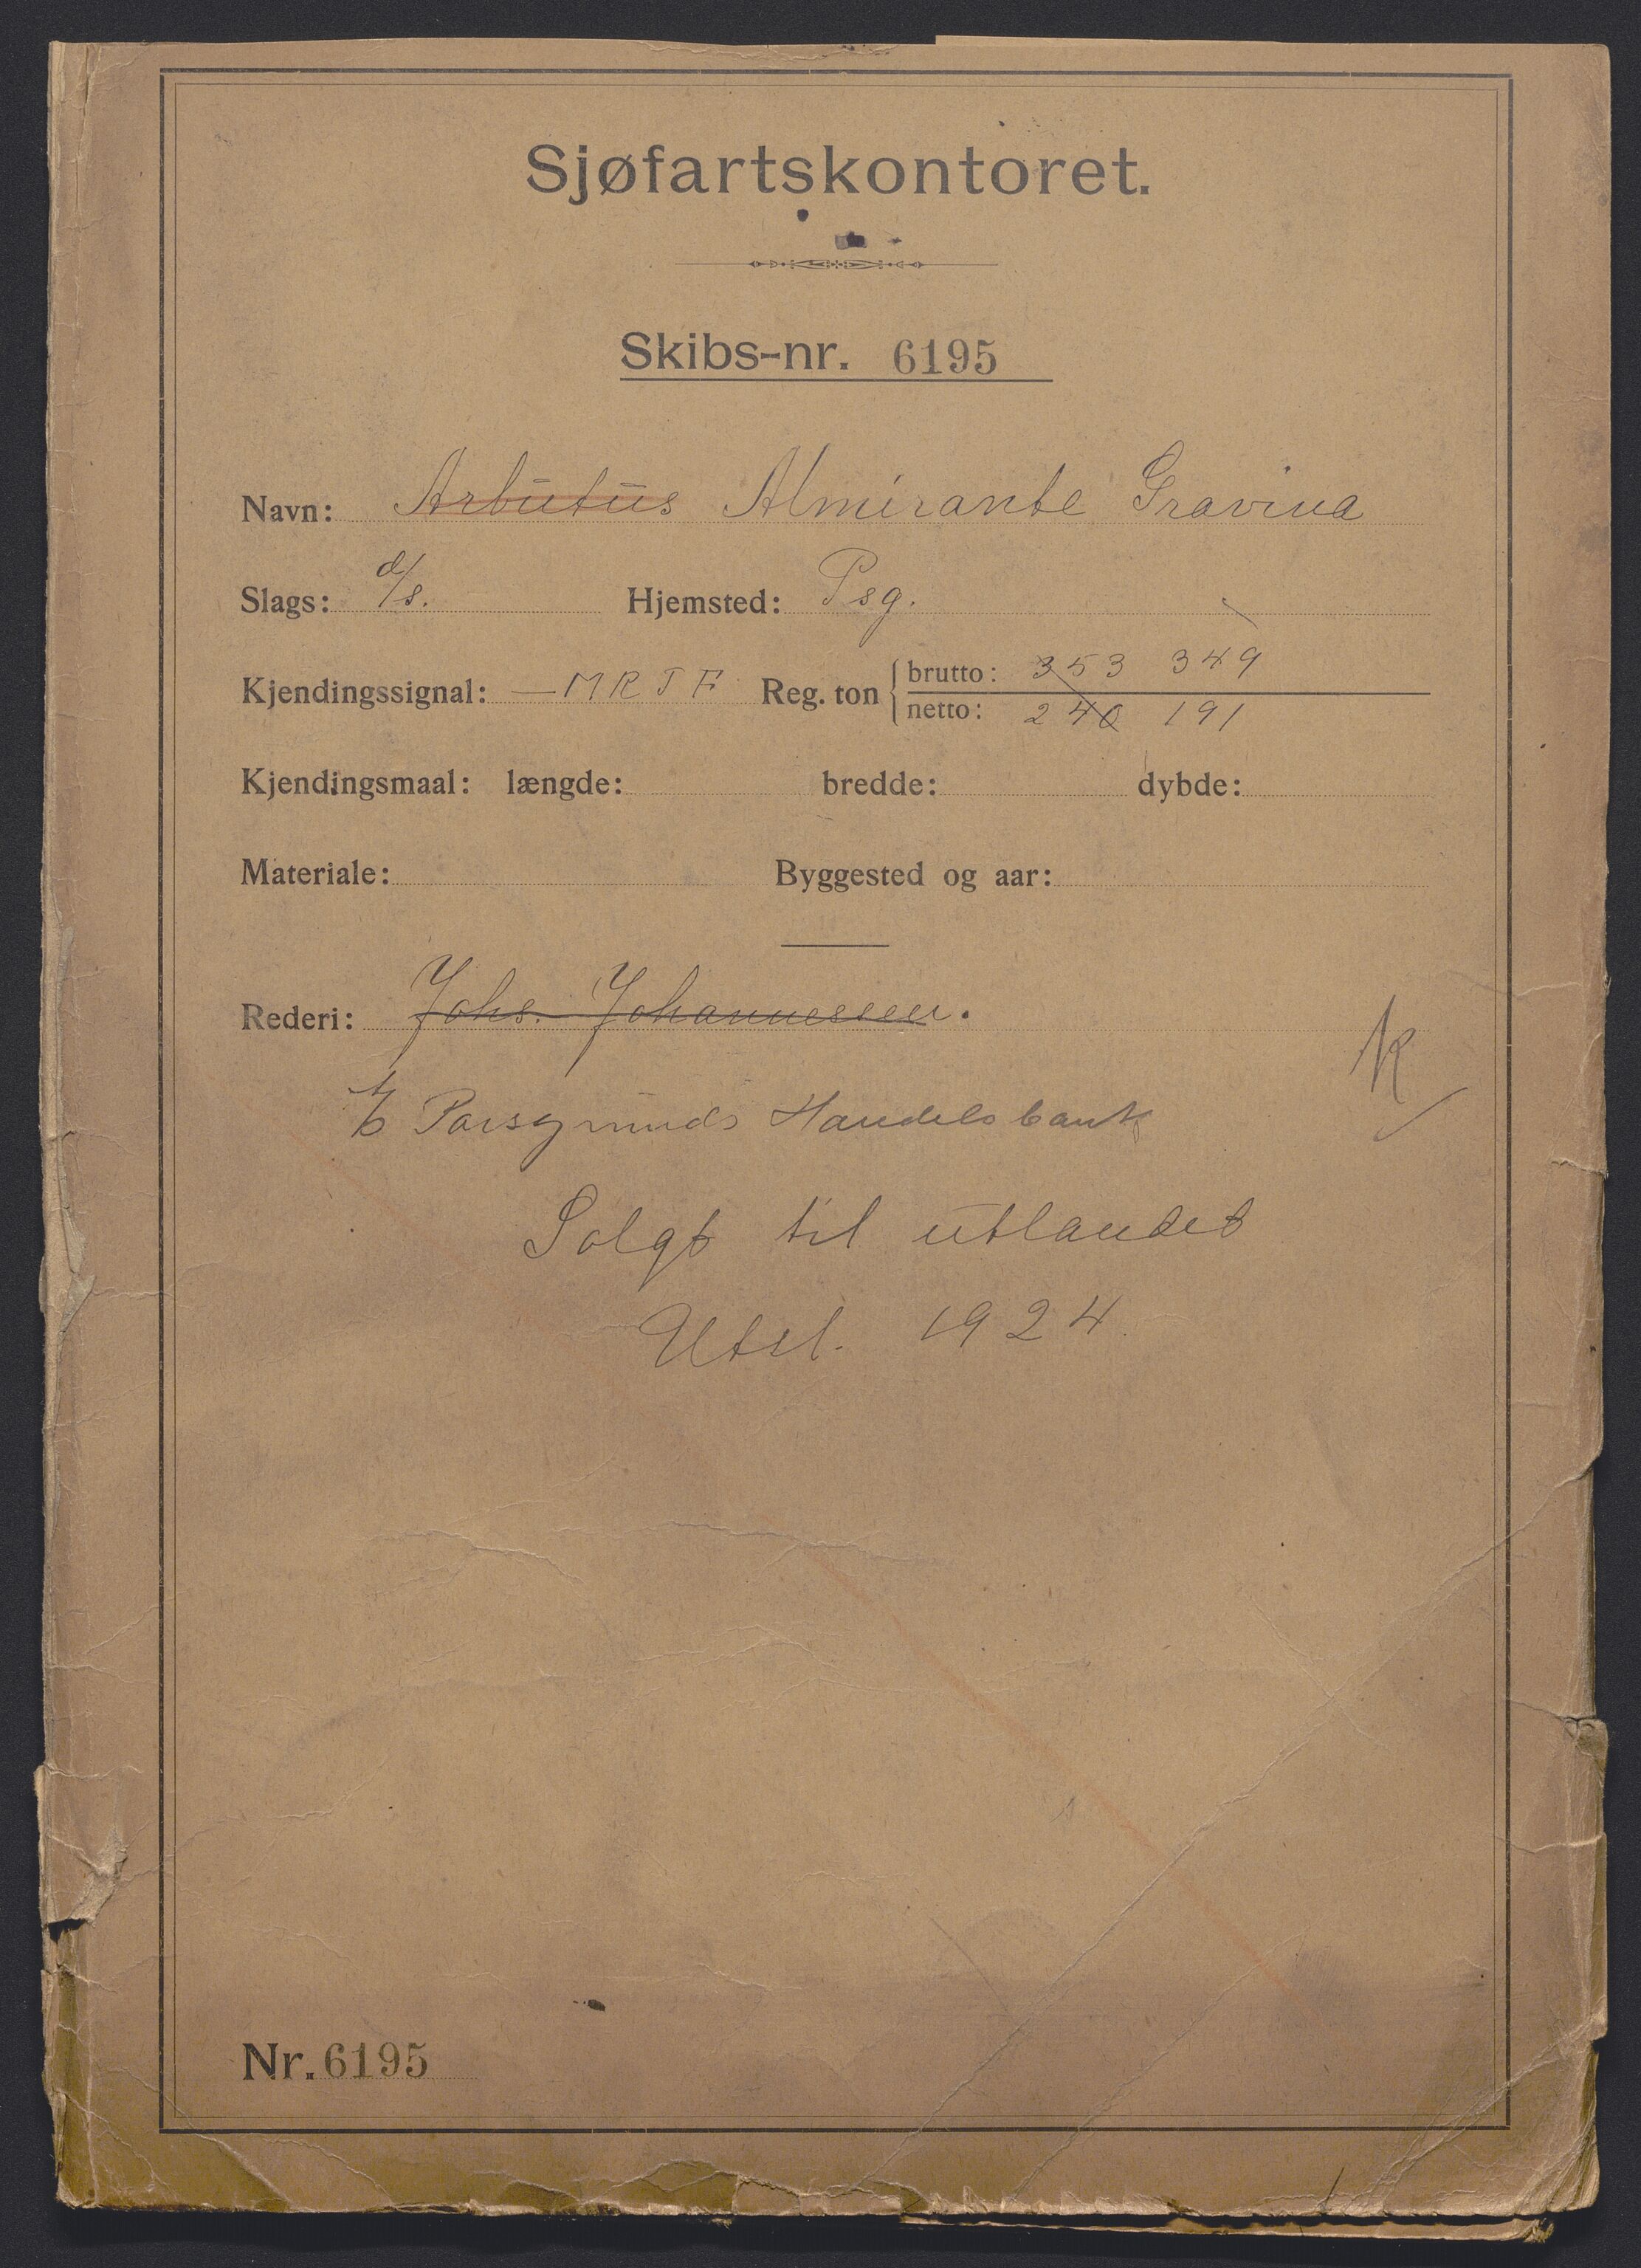 Sjøfartskontoret.
Skibs-nr. 6195
Navn: Arbutus Almirante Gravina
Slags: d/s. Hjemsted: Psg.
Kjendingssignal: — MRTF Reg. ton brutto: 353 349
netto: 240 191
Kjendingsmaal: længde: bredde: dybde:
Materiale: Byggested og aar:
Rederi: Johs. Johannessen.
K
Porsgrunds Handelsbank
Solgt til utlandet
Utsl. 1924
Nr. 6195